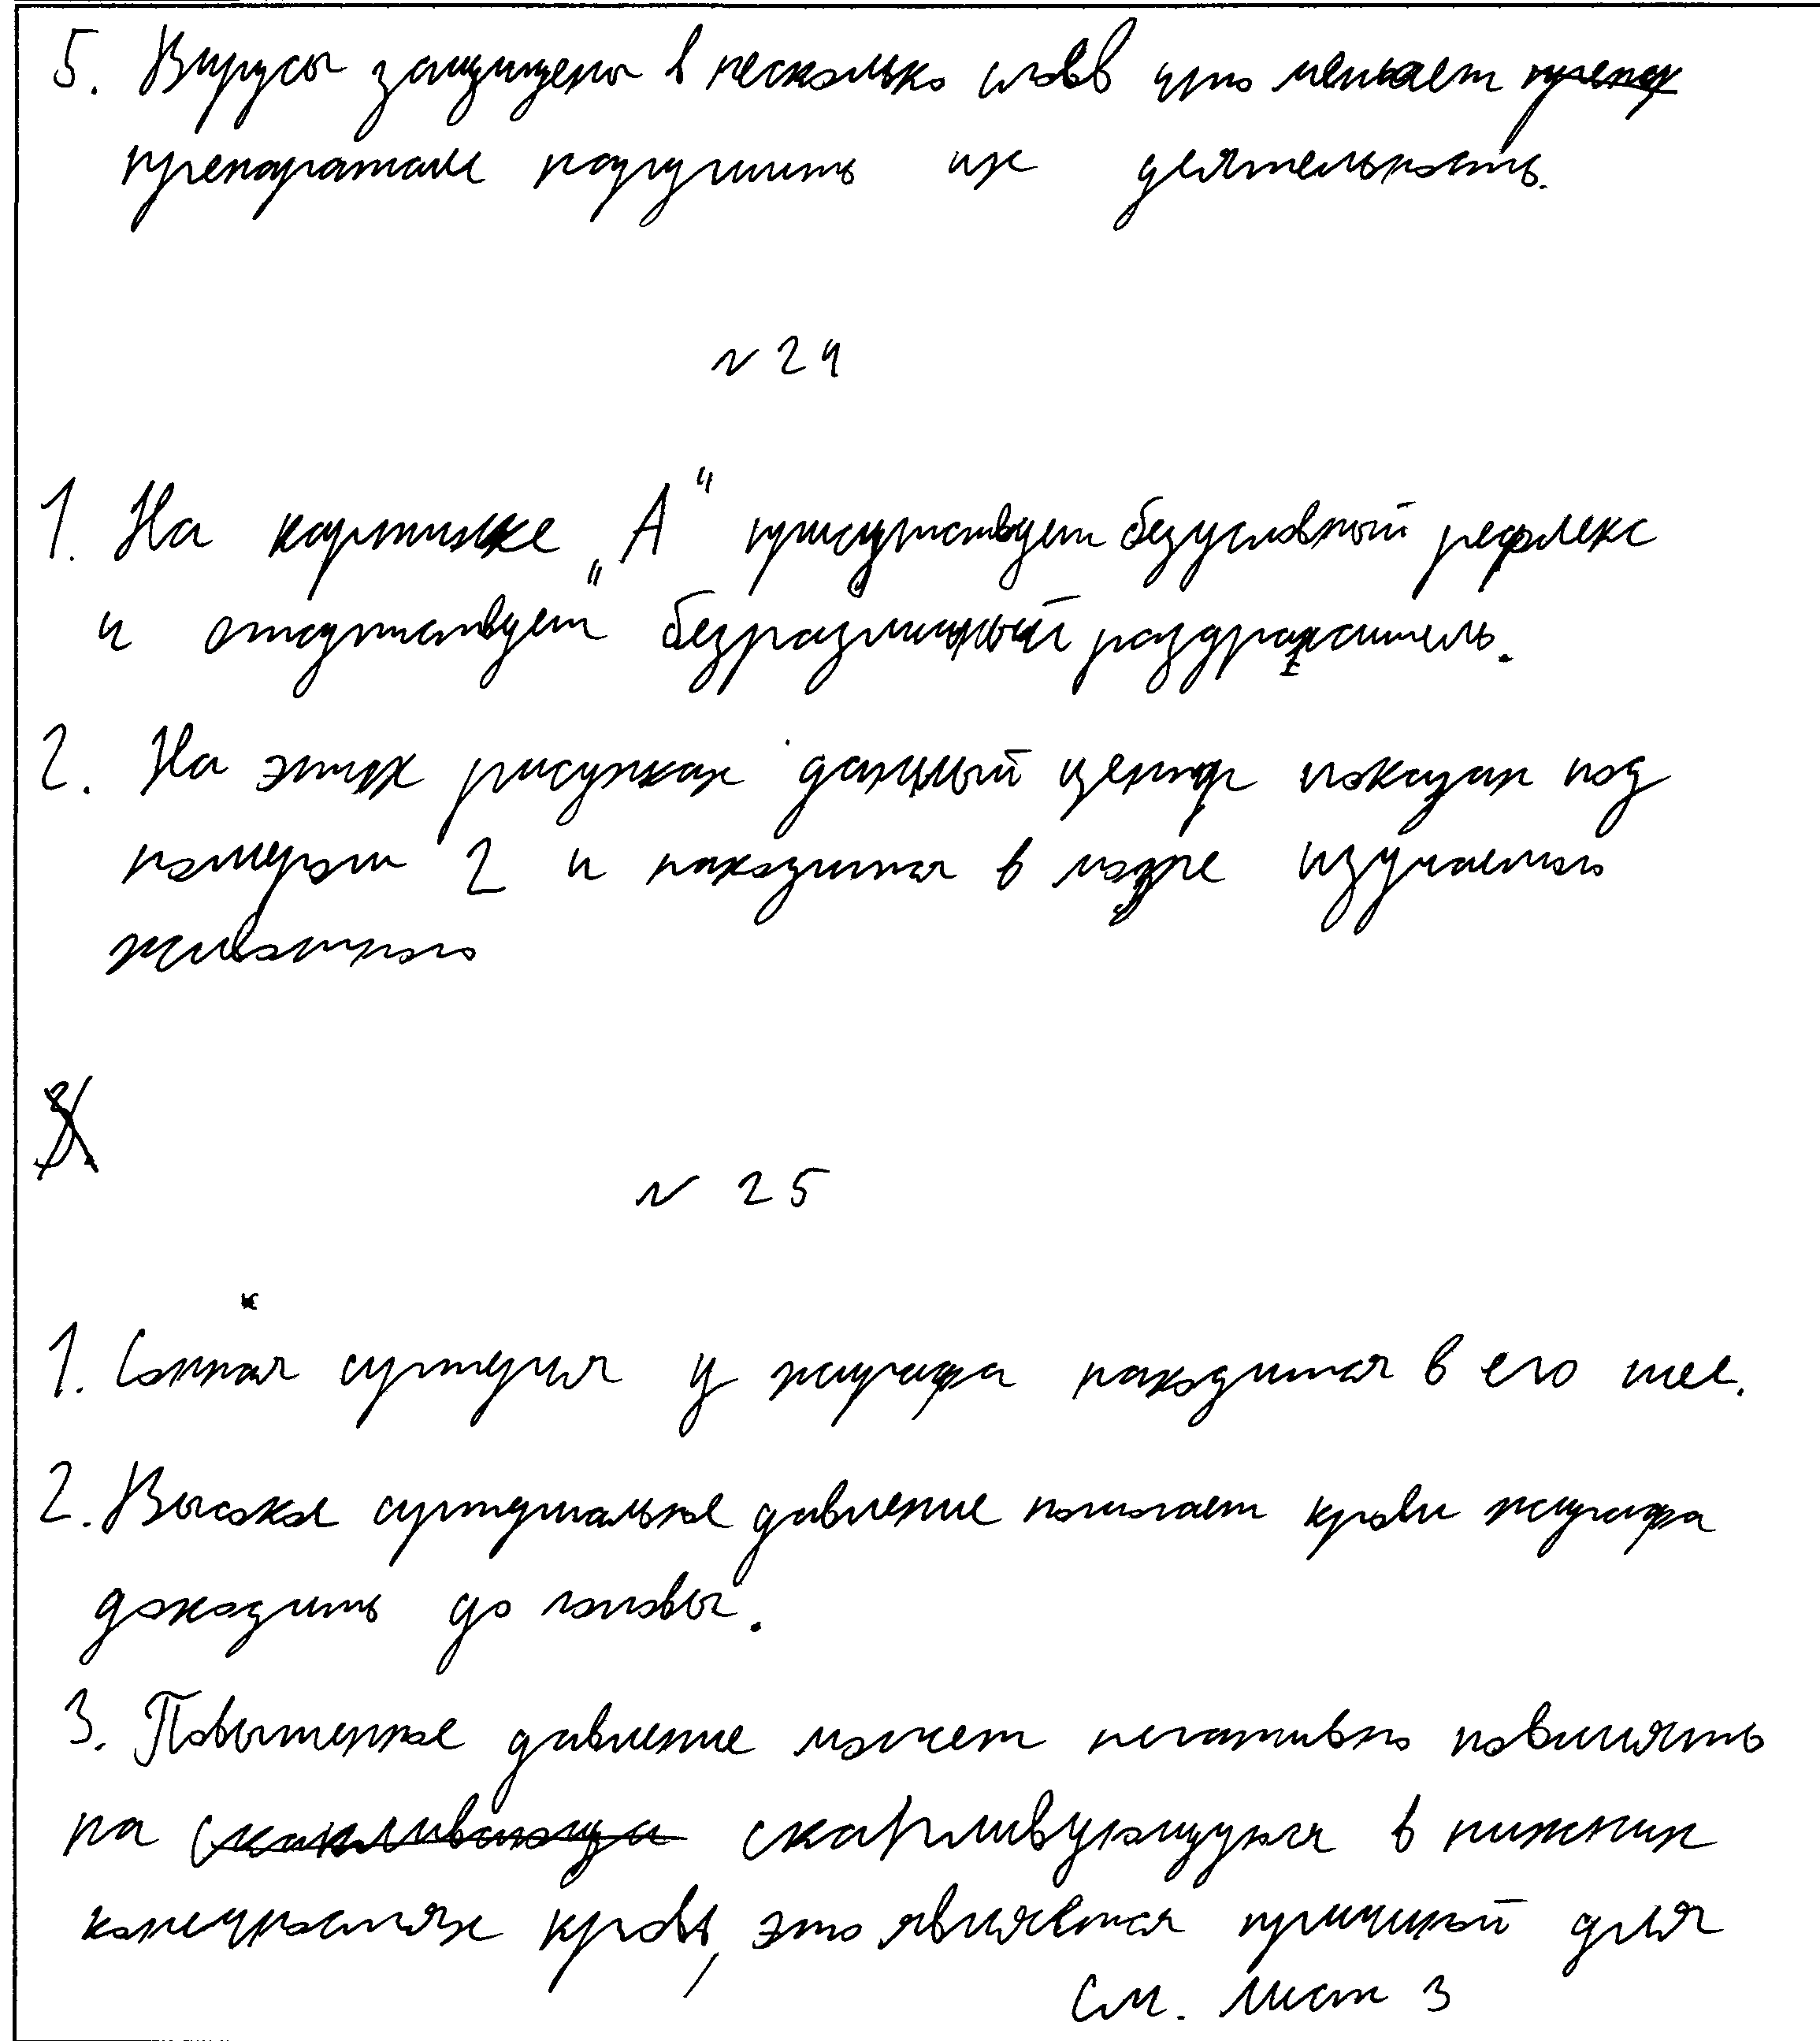 5. Вирусы защищены в несколько слоёв что мешает
препаратам нарушить их деятельность.
№ 24
1. На картинке „А“ присутствует безусловный рефлекс
и отсутствует "безразличный раздражитель.
2. На этих рисунках данный центр показан под
номером 2 и находится в мозге изучаемого
животного
№ 25
1. Сонная артерия у жирафа находится в его шее.
2. Высокое артериальное давление помогает крови жирафа
доходить до головы.
3. Повышенное давление может негативно повлиять
на скапливующуюся в нижних
конечностях кровь, это является причиной для
См. лист 3